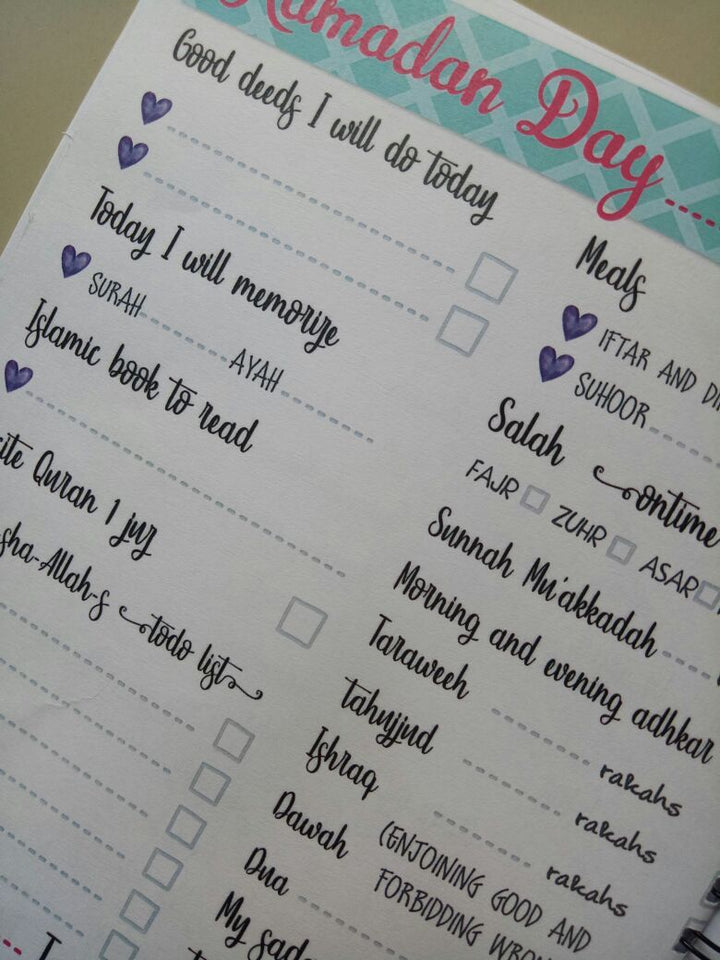 Ramadan Day
Good deeds I will do today
Today I will memorize
SURAH AYAH
Islamic book to read
Quran 1 juz
todo list
Meals
IFTAR AND
SUHOOR
Salah ontime
FAJR ZUHR ASAR
Sunnah Mu'akkadah
Morning and evening adhkar
Taraweeh rakahs
tahujjud rakahs
Ishraq rakahs
Dawah (ENJOINING GOOD AND
FORBIDDING
Dua
My